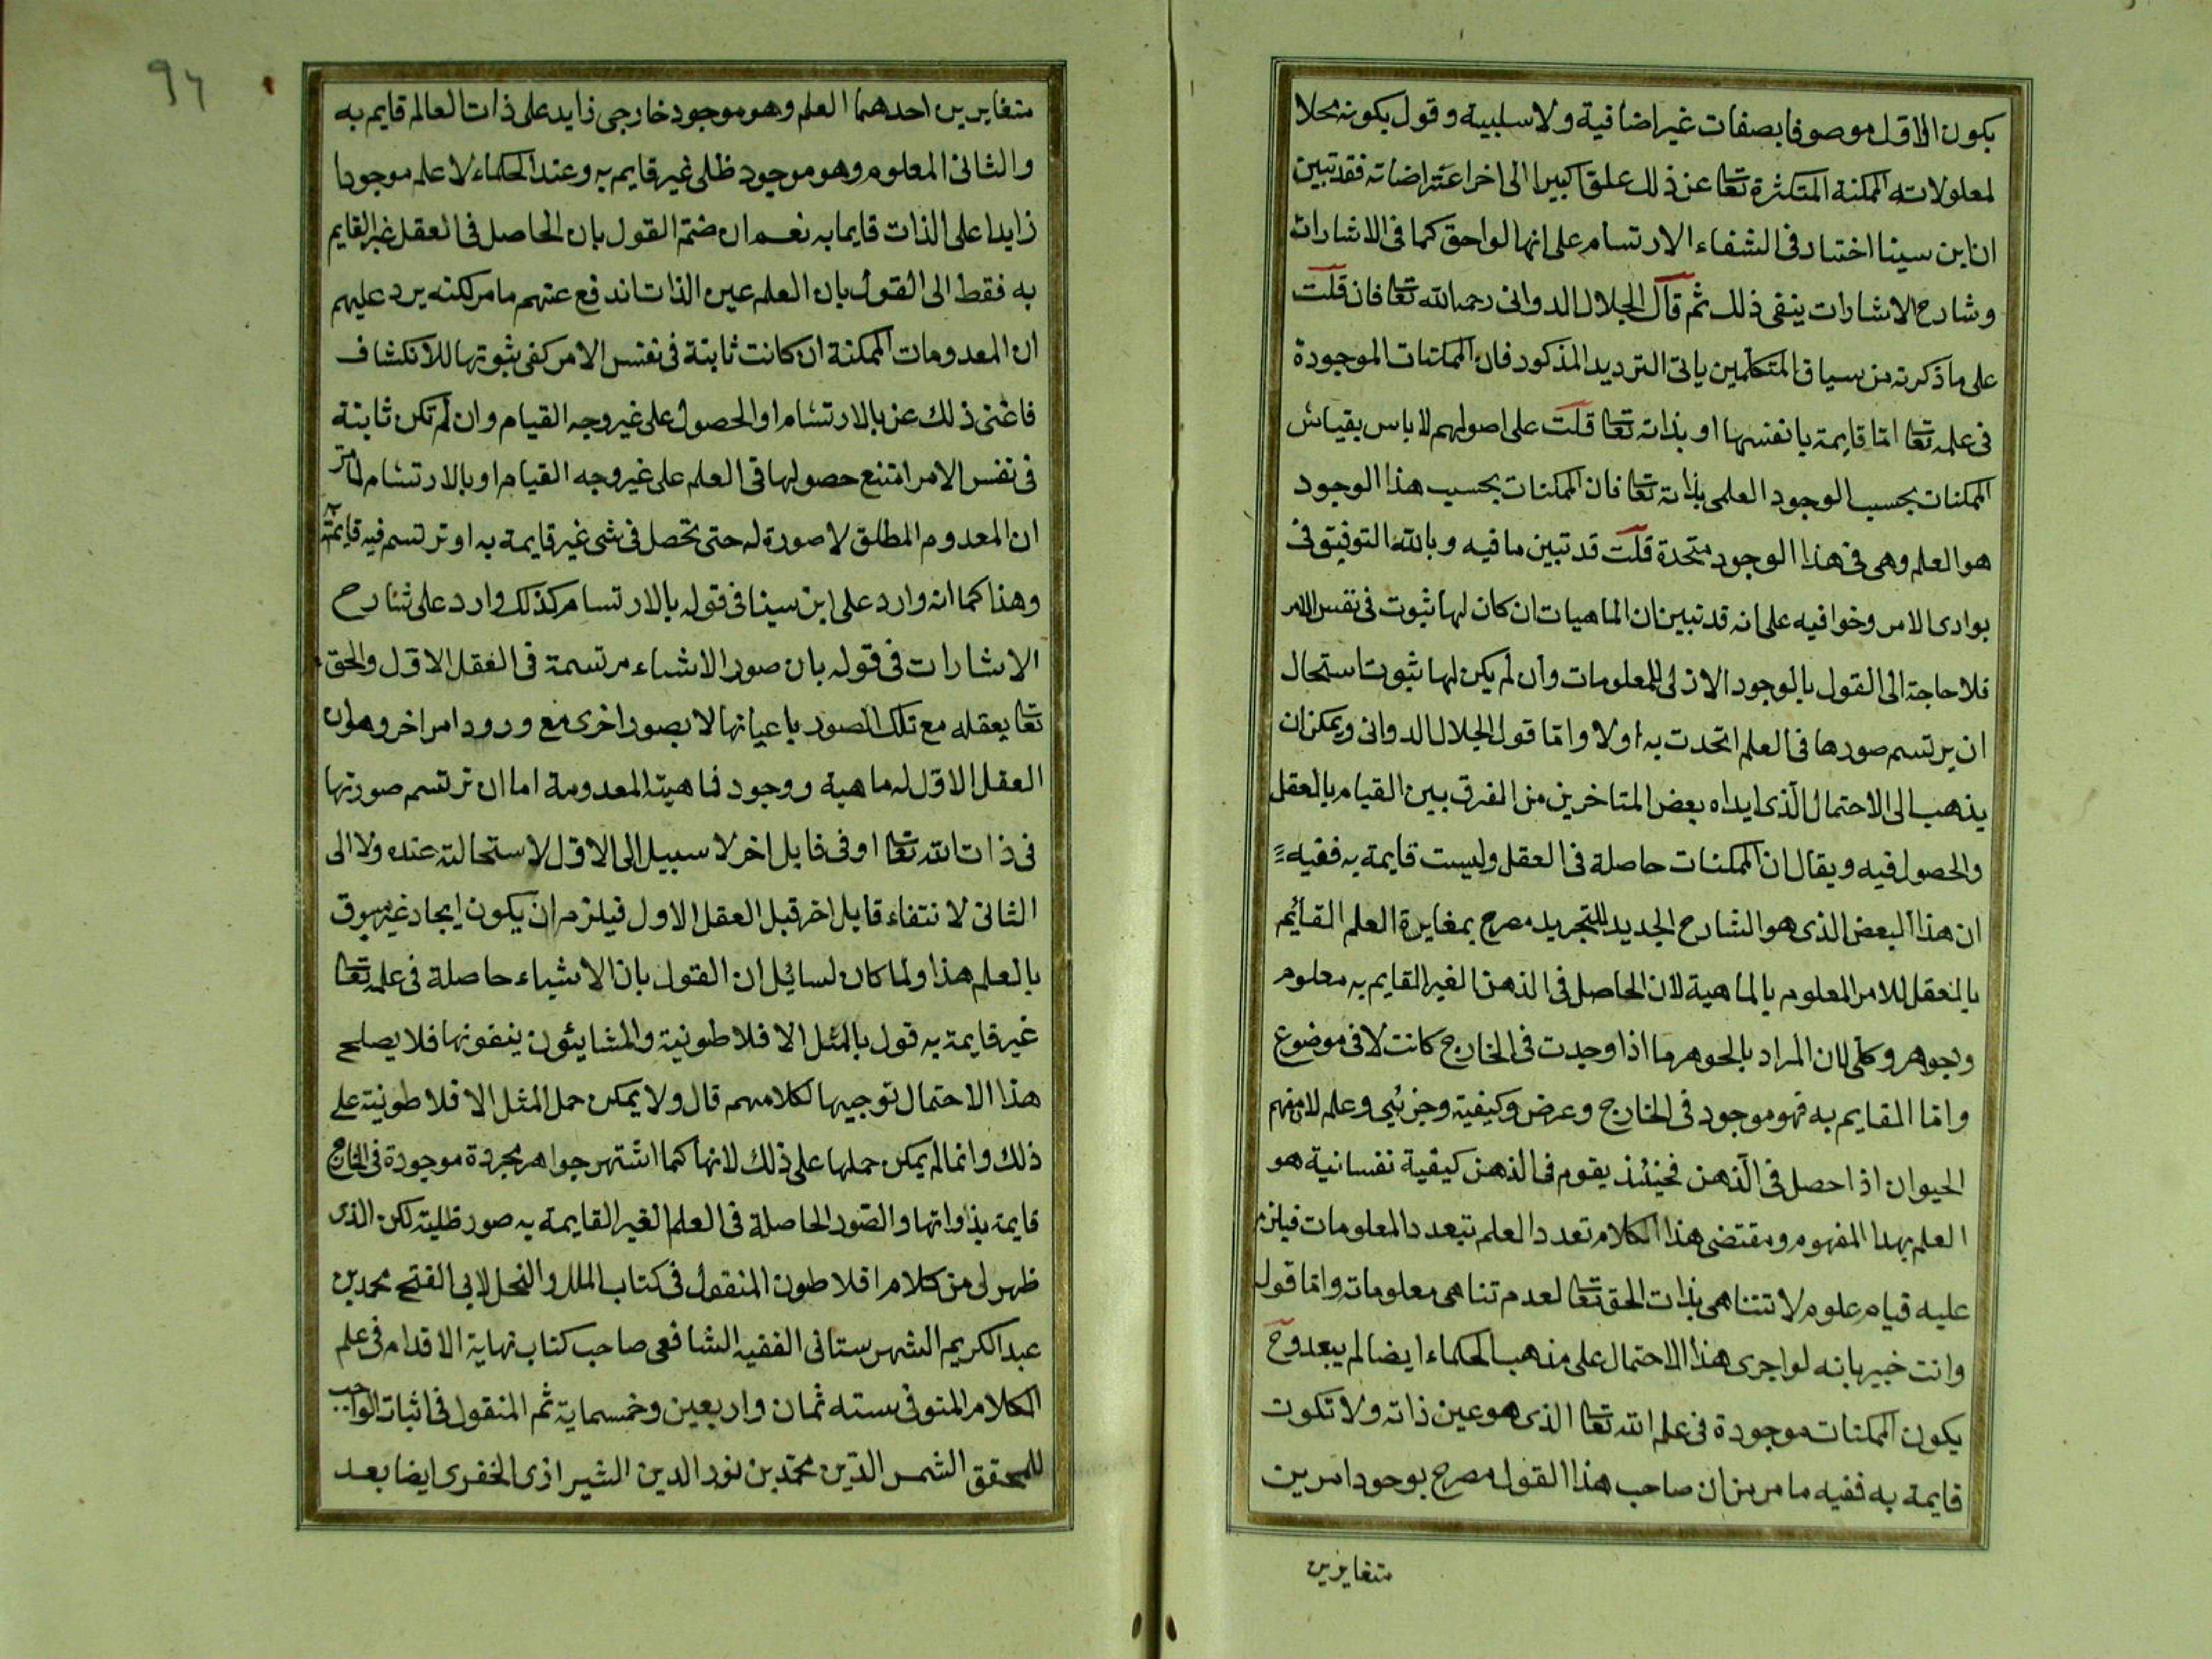 يكون الاول موصوفا بصفات غير اضافية ولا سلبية وقول بكونه محلا
لمعلولاته الممكنة المتكثرة تعا عن ذلك علوا كبيرا الى اخر اعتراضاته فقد تبين
ان ابن سينا اختار فى الشفاء الارتسام على انها لواحق كما فى الاشارات
وشارح الاشارات ينفى ذلك ثم قال الجلال الدوانى رحمه الله تعا فان قلت
على ما ذكرته من سياق المتكلمين ياتى الترديد المذكور فان الممكنات الموجودة
فى علمه تعا امّا قايمة بانفسها او بذاته تعا قلت على اصولهم لا باس بقيام
الممكنات بحسب الوجود العلمى بذاته تعا فان الممكنات بحسب هذا الوجود
هو العلم وهى فى هذا الوجود متحدة قلت قد تبين ما فيه وبالله التوفيق فى
بوادى الامر وخوافيه على انه قد تبين ان الماهيات ان كان لها ثبوت فى نفس الامر
فلا حاجة الى القول بالوجود الازلى للمعلومات وان لم يكن لها ثبوت استحال
ان يرتسم صورها فى العلم اتحدت به اولا وامّا قول الجلال الدوانى ويمكن ان
يذهب الى الاحتمال الّذى ابداه بعض المتاخرين من الفرق بين القيام بالعقل
والحصول فيه ويقال ان الممكنات حاصلة فى العقل وليست قايمة به ففيه
ان هذا البعض الذى هو الشارح الجديد للتجريد مصرح بمغايرة العلم القائم
بالعقل للامر المعلوم بالماهية لان الحاصل فى الذهن الغير القايم به معلوم
وجوهر وكلى لان المراد بالجوهر ما اذا وجدت فى الخارج كانت لا فى موضوع
وامّا القايم به فهو موجود فى الخارج وعرض وكيفية وجزئى وعلم لان مفهوم
الحيوان اذا حصل فى الذهن فحينئذ يقوم فى الذهن كيفية نفسانية هو
العلم بهذا المفهوم ومقتضى هذا الكلام تعدد العلم بتعدد المعلومات فيلزم
عليه قيام علوم لا تتناهى بذات الحق تعا لعدم تناهى معلوماته وامّا قوله
وانت خبير بانه لو اجرى هذا الاحتمال على مذهب الحكماء ايضا لم يبعد وح
يكون الممكنات موجودة فى علم الله تعا الذى هو عين ذاته ولا تكون
قايمة به ففيه ما مر من ان صاحب هذا القول مصرح بوجود امرين
متغايرين
96
متغايرين احدهما العلم وهو موجود خارجى زايد على ذات العالم قايم به
والثانى المعلوم وهو موجود ظلى غير قايم به وعند الحكماء لا علم موجودا
زايدا على الذات قايما به نعم ان ضمّ القول بان الحاصل فى العقل غير القايم
به فقط الى القول بان العلم عين الذات اندفع عنهم ما مر لكنه يرد عليهم
ان المعدومات الممكنة ان كانت ثابتة فى نفس الامر كفى ثبوتها للانكشاف
فاغنى ذلك عن بالارتسام او الحصول على غير وجه القيام وان لم تكن ثابتة
فى نفس الامر امتنع حصولها فى العلم على غير وجه القيام او بالارتسام لما مر
ان المعدوم المطلق لا صورة له حتى تحصل فى شى غير قايمة به او ترتسم فيه قايمة به
وهذا كما انه وارد على ابن سينا فى قوله بالارتسام كذلك وارد على شارح
الاشارات فى قوله بان صور الاشياء مرتسمة فى العقل الاول والحق
تعا يعقله مع تلك الصور باعيانها لا بصور اخرى مع ورود امر اخر وهو ان
العقل الاول له ماهية ووجود فماهيته المعدومة اما ان ترتسم صورتها
فى ذات الله تعا او فى قابل اخر لا سبيل الى الاول لاستحالته عنده ولا الى
الثانى لانتفاء قابل اخر قبل العقل الاول فيلزم ان يكون ايجاد غير مسبوق
بالعلم هذا ولما كان لسائل ان القول بان الاشياء حاصلة فى علمه تعا
غير قايمة به قول بالمثل الافلاطونية والمشايئون ينفونها فلا يصلح
هذا الاحتمال توجيها لكلامهم قال ولا يمكن حمل المثل الافلاطونية على
ذلك وانما لم يمكن حملها على ذلك لانها كما اشتهر جواهر مجردة موجودة فى الخارج
قايمة بذواتها والصّور الحاصلة فى العلم الغير القايمة به صور ظلية لكن الذى
ظهر لى من كلام افلاطون المنقول فى كتاب الملل والنحل لابى الفتح محمد بن
عبد الكريم الشهرستانى الفقيه الشافعى صاحب كتاب نهاية الاقدام فى علم
الكلام المتوفى سنه ثمان واربعين وخمسماية ثم المنقول فى اثبات الواجب
للمحقق الشمس الدّين محمّد بن نور الدين الشيرازى الخفرى ايضا بعد